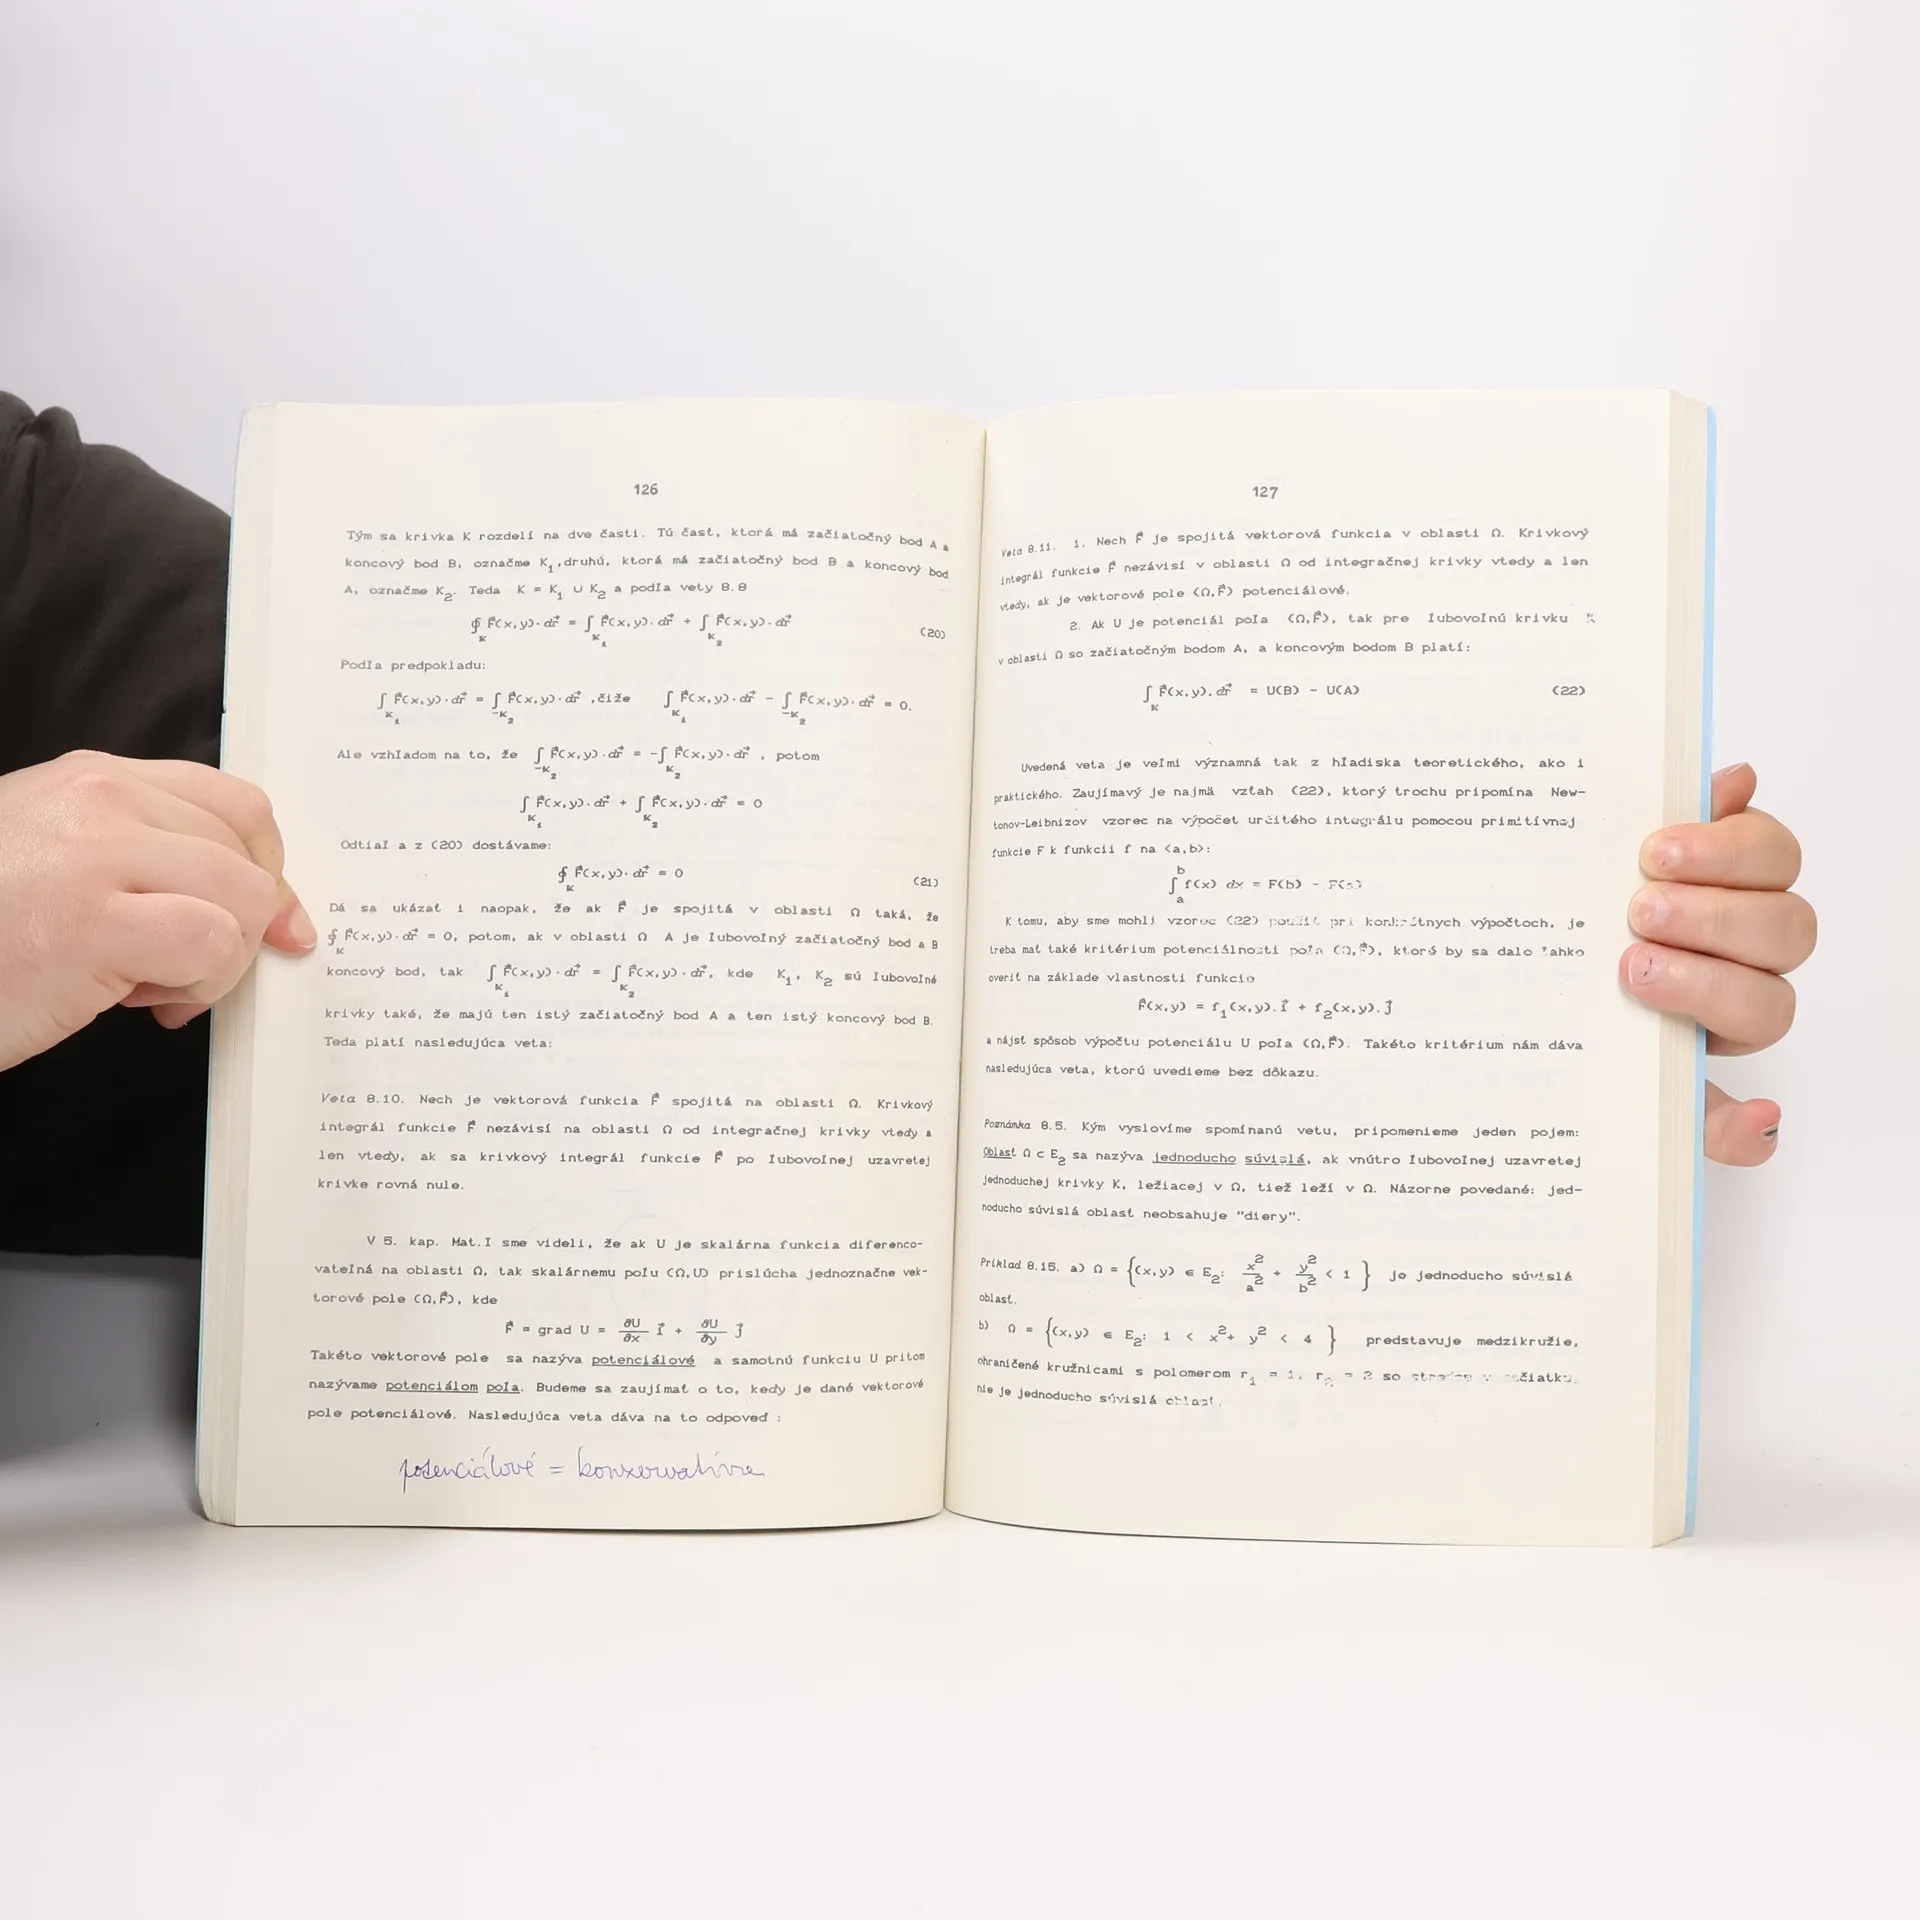 126
Tým sa krivka K rozdelí na dve časti. Tú časť, ktorá má začiatočný bod A a
koncový bod B, označme K₁, druhú, ktorá má začiatočný bod B a koncový bod
A, označme K₂. Teda K = K₁ ∪ K₂ a podľa vety 8.8
∮_K F⃗(x,y)·dr⃗ = ∫_K₁ F⃗(x,y).dr⃗ + ∫_K₂ F⃗(x,y).dr⃗ (20)
Podľa predpokladu:
∫_K₁ F⃗(x,y)·dr⃗ = ∫_-K₂ F⃗(x,y)·dr⃗ ,čiže ∫_K₁ F⃗(x,y).dr⃗ - ∫_-K₂ F⃗(x,y).dr⃗ = 0.
Ale vzhľadom na to, že ∫_-K₂ F⃗(x,y)·dr⃗ = -∫_K₂ F⃗(x,y)·dr⃗ , potom
∫_K₁ F⃗(x,y).dr⃗ + ∫_K₂ F⃗(x,y).dr⃗ = 0
Odtiaľ a z (20) dostávame:
∮_K F⃗(x,y)·dr⃗ = 0 (21)
Dá sa ukázať i naopak, že ak F⃗ je spojitá v oblasti Ω taká, že
∮_K F⃗(x,y)·dr⃗ = 0, potom, ak v oblasti Ω A je ľubovoľný začiatočný bod a B
koncový bod, tak ∫_K₁ F⃗(x,y)·dr⃗ = ∫_K₂ F⃗(x,y)·dr⃗, kde K₁, K₂ sú ľubovoľné
krivky také, že majú ten istý začiatočný bod A a ten istý koncový bod B.
Teda platí nasledujúca veta:
Veta 8.10. Nech je vektorová funkcia F⃗ spojitá na oblasti Ω. Krivkový
integrál funkcie F⃗ nezávisí na oblasti Ω od integračnej krivky vtedy a
len vtedy, ak sa krivkový integrál funkcie F⃗ po ľubovoľnej uzavretej
krivke rovná nule.
V 5. kap. Mat.I sme videli, že ak U je skalárna funkcia diferenco-
vateľná na oblasti Ω, tak skalárnemu poľu (Ω,U) prislúcha jednoznačne vek-
torové pole (Ω,F⃗), kde
F⃗ = grad U = ∂U/∂x i⃗ + ∂U/∂y j⃗
Takéto vektorové pole sa nazýva potenciálové a samotnú funkciu U pritom
nazývame potenciálom poľa. Budeme sa zaujímať o to, kedy je dané vektorové
pole potenciálové. Nasledujúca veta dáva na to odpoveď :
potenciálové = konzervatívne
127
Veta 8.11. 1. Nech F⃗ je spojitá vektorová funkcia v oblasti Ω. Krivkový
integrál funkcie F⃗ nezávisí v oblasti Ω od integračnej krivky vtedy a len
vtedy, ak je vektorové pole (Ω,F⃗) potenciálové.
2. Ak U je potenciál poľa (Ω,F⃗), tak pre ľubovoľnú krivku K
v oblasti Ω so začiatočným bodom A, a koncovým bodom B platí:
∫_K F⃗(x,y).dr⃗ = U(B) - U(A) (22)
Uvedená veta je veľmi významná tak z hľadiska teoretického, ako i
praktického. Zaujímavý je najmä vzťah (22), ktorý trochu pripomína New-
tonov-Leibnizov vzorec na výpočet určitého integrálu pomocou primitívnej
funkcie F k funkcii f na <a,b>:
∫_a^b f(x) dx = F(b) - F(a)
K tomu, aby sme mohli vzorec (22) použiť pri konkrétnych výpočtoch, je
treba mať také kritérium potenciálnosti poľa (Ω,F⃗), ktoré by sa dalo ľahko
overiť na základe vlastnosti funkcie
F⃗(x,y) = f₁(x,y).i⃗ + f₂(x,y).j⃗
a nájsť spôsob výpočtu potenciálu U poľa (Ω,F⃗). Takéto kritérium nám dáva
nasledujúca veta, ktorú uvedieme bez dôkazu.
Poznámka 8.5. Kým vyslovíme spomínanú vetu, pripomenieme jeden pojem:
Oblasť Ω ⊂ E₂ sa nazýva jednoducho súvislá, ak vnútro ľubovoľnej uzavretej
jednoduchej krivky K, ležiacej v Ω, tiež leží v Ω. Názorne povedané: jed-
noducho súvislá oblasť neobsahuje "diery".
Príklad 8.15. a) Ω = {(x,y) ∈ E₂: x²/a² + y²/b² < 1 } je jednoducho súvislá
oblasť.
b) Ω = {(x,y) ∈ E₂: 1 < x²+ y² < 4 } predstavuje medzikružie,
ohraničené kružnicami s polomerom r₁ = 1, r₂ = 2 so stredom v začiatku,
nie je jednoducho súvislá oblasť.